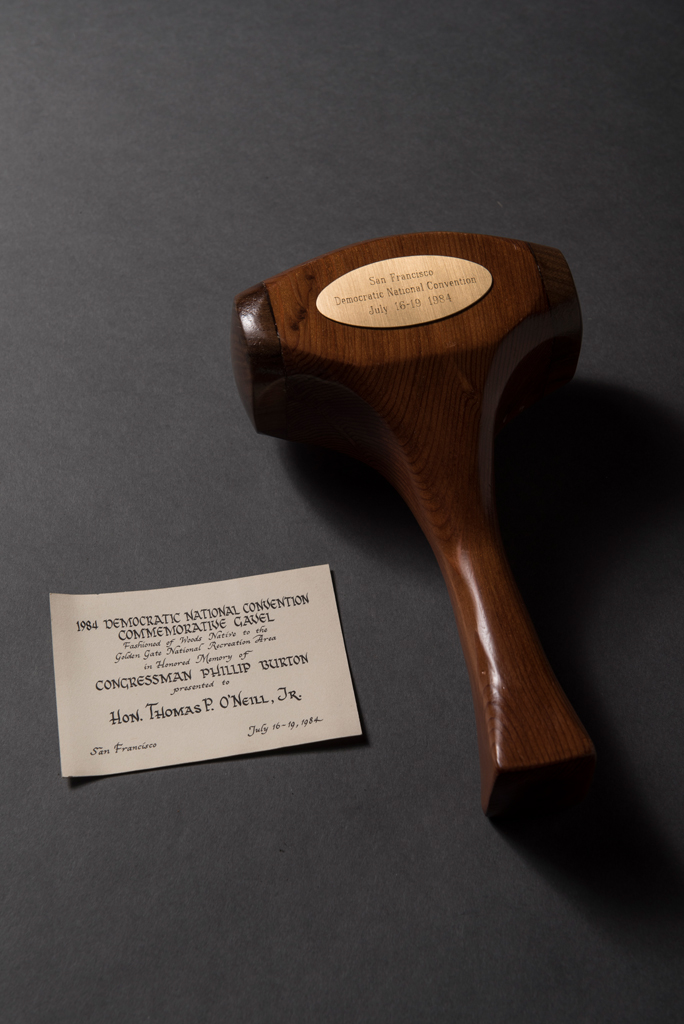 San Francisco
Democratic National Convention
July 16-19 1984
1984 DEMOCRATIC NATIONAL CONVENTION
COMMEMORATIVE GAVEL
Fashioned of Woods Native to the
Golden Gate National Recreation Area
in Honored Memory of
CONGRESSMAN PHILLIP BURTON
presented to
HON. THOMAS P. O'NEILL, JR.
July 16-19, 1984
San Francisco